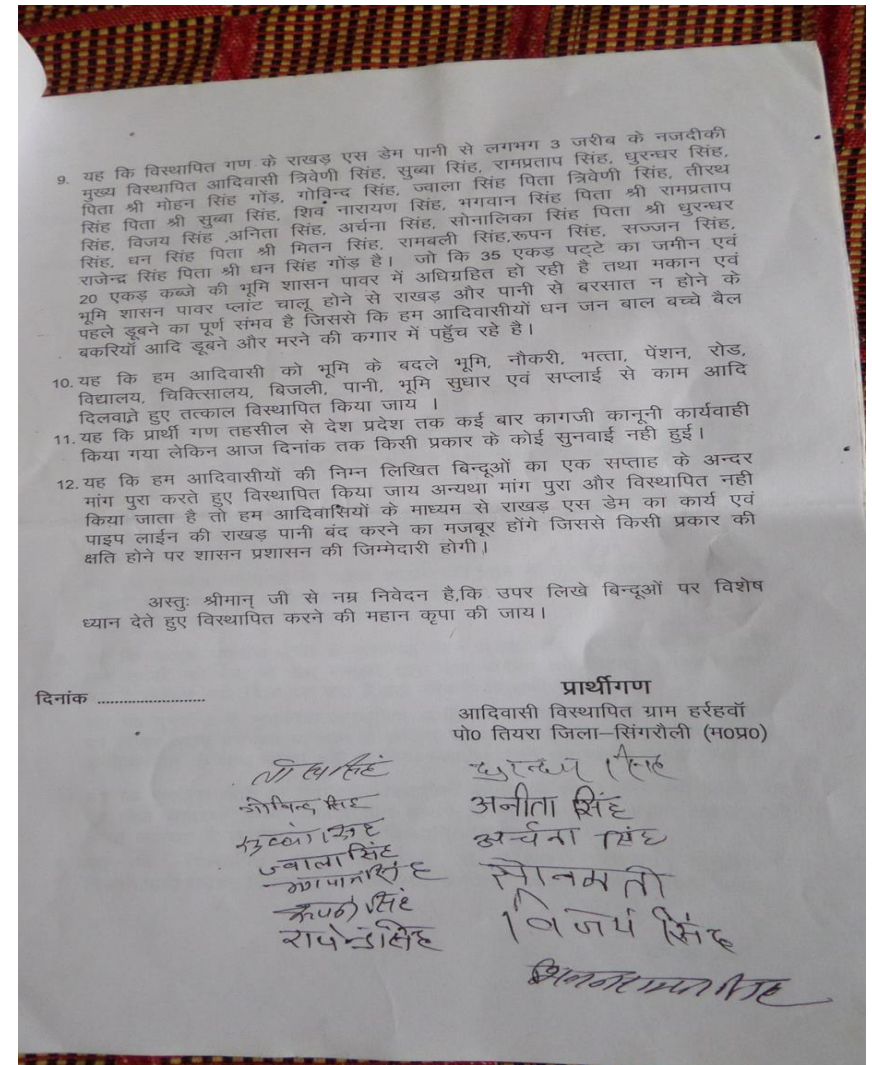 9. यह कि विस्थापित गण के राखड़ एस डेम पानी से लगभग 3 जरीब के नजदीकी
मुख्य विस्थापित आदिवासी त्रिवेणी सिंह, सुब्बा सिंह, रामप्रताप सिंह, धुरन्धर सिंह,
पिता श्री मोहन सिंह गोंड़, गोविन्द सिंह, ज्वाला सिंह पिता त्रिवेणी सिंह, तीरथ
सिंह पिता श्री सुब्बा सिंह, शिव नारायण सिंह, भगवान सिंह पिता श्री रामप्रताप
सिंह, विजय सिंह ,अनिता सिंह, अर्चना सिंह, सोनालिका सिंह पिता श्री धुरन्धर
सिंह, धन सिंह पिता श्री मितन सिंह, रामबली सिंह,रूपन सिंह, सज्जन सिंह,
राजेन्द्र सिंह पिता श्री धन सिंह गोंड़ है। जो कि 35 एकड़ पट्टे का जमीन एवं
20 एकड़ कब्जे की भूमि शासन पावर में अधिग्रहित हो रही है तथा मकान एवं
भूमि शासन पावर प्लांट चालू होने से राखड़ और पानी से बरसात न होने के
पहले डूबने का पूर्ण संभव है जिससे कि हम आदिवासीयों धन जन बाल बच्चे बैल
बकरियॉ आदि डूबने और मरने की कगार में पहुँच रहे है।
10. यह कि हम आदिवासी को भूमि के बदले भूमि, नौकरी, भत्ता, पेंशन, रोड,
विद्यालय, चिक्तिसालय, बिजली, पानी, भूमि सुधार एवं सप्लाई से काम आदि
दिलवाते हुए तत्काल विस्थापित किया जाय ।
11. यह कि प्रार्थी गण तहसील से देश प्रदेश तक कई बार कागजी कानूनी कार्यवाही
किया गया लेकिन आज दिनांक तक किसी प्रकार के कोई सुनवाई नही हुई।
12. यह कि हम आदिवासीयों की निम्न लिखित बिन्दूओं का एक सप्ताह के अन्दर
मांग पुरा करते हुए विस्थापित किया जाय अन्यथा मांग पुरा और विस्थापित नही
किया जाता है तो हम आदिवासियों के माध्यम से राखड़ एस डेम का कार्य एवं
पाइप लाईन की राखड़ पानी बंद करने का मजबूर होंगे जिससे किसी प्रकार की
क्षति होने पर शासन प्रशासन की जिम्मेदारी होगी।
अस्तुः श्रीमान् जी से नम्र निवेदन है,कि उपर लिखे बिन्दूओं पर विशेष
ध्यान देते हुए विस्थापित करने की महान कृपा की जाय।
दिनांक .........................
प्रार्थीगण
आदिवासी विस्थापित ग्राम हर्रहवॉ
पो0 तियरा जिला–सिंगरौली (म0प्र0)
सिंह
गोविन्द सिंह
सिंह
ज्वाला सिंह
सिंह
सिंह
राजेन्द्र सिंह
धुरन्धर सिंह
अनीता सिंह
अर्चना सिंह
सोनमती
विजय सिंह